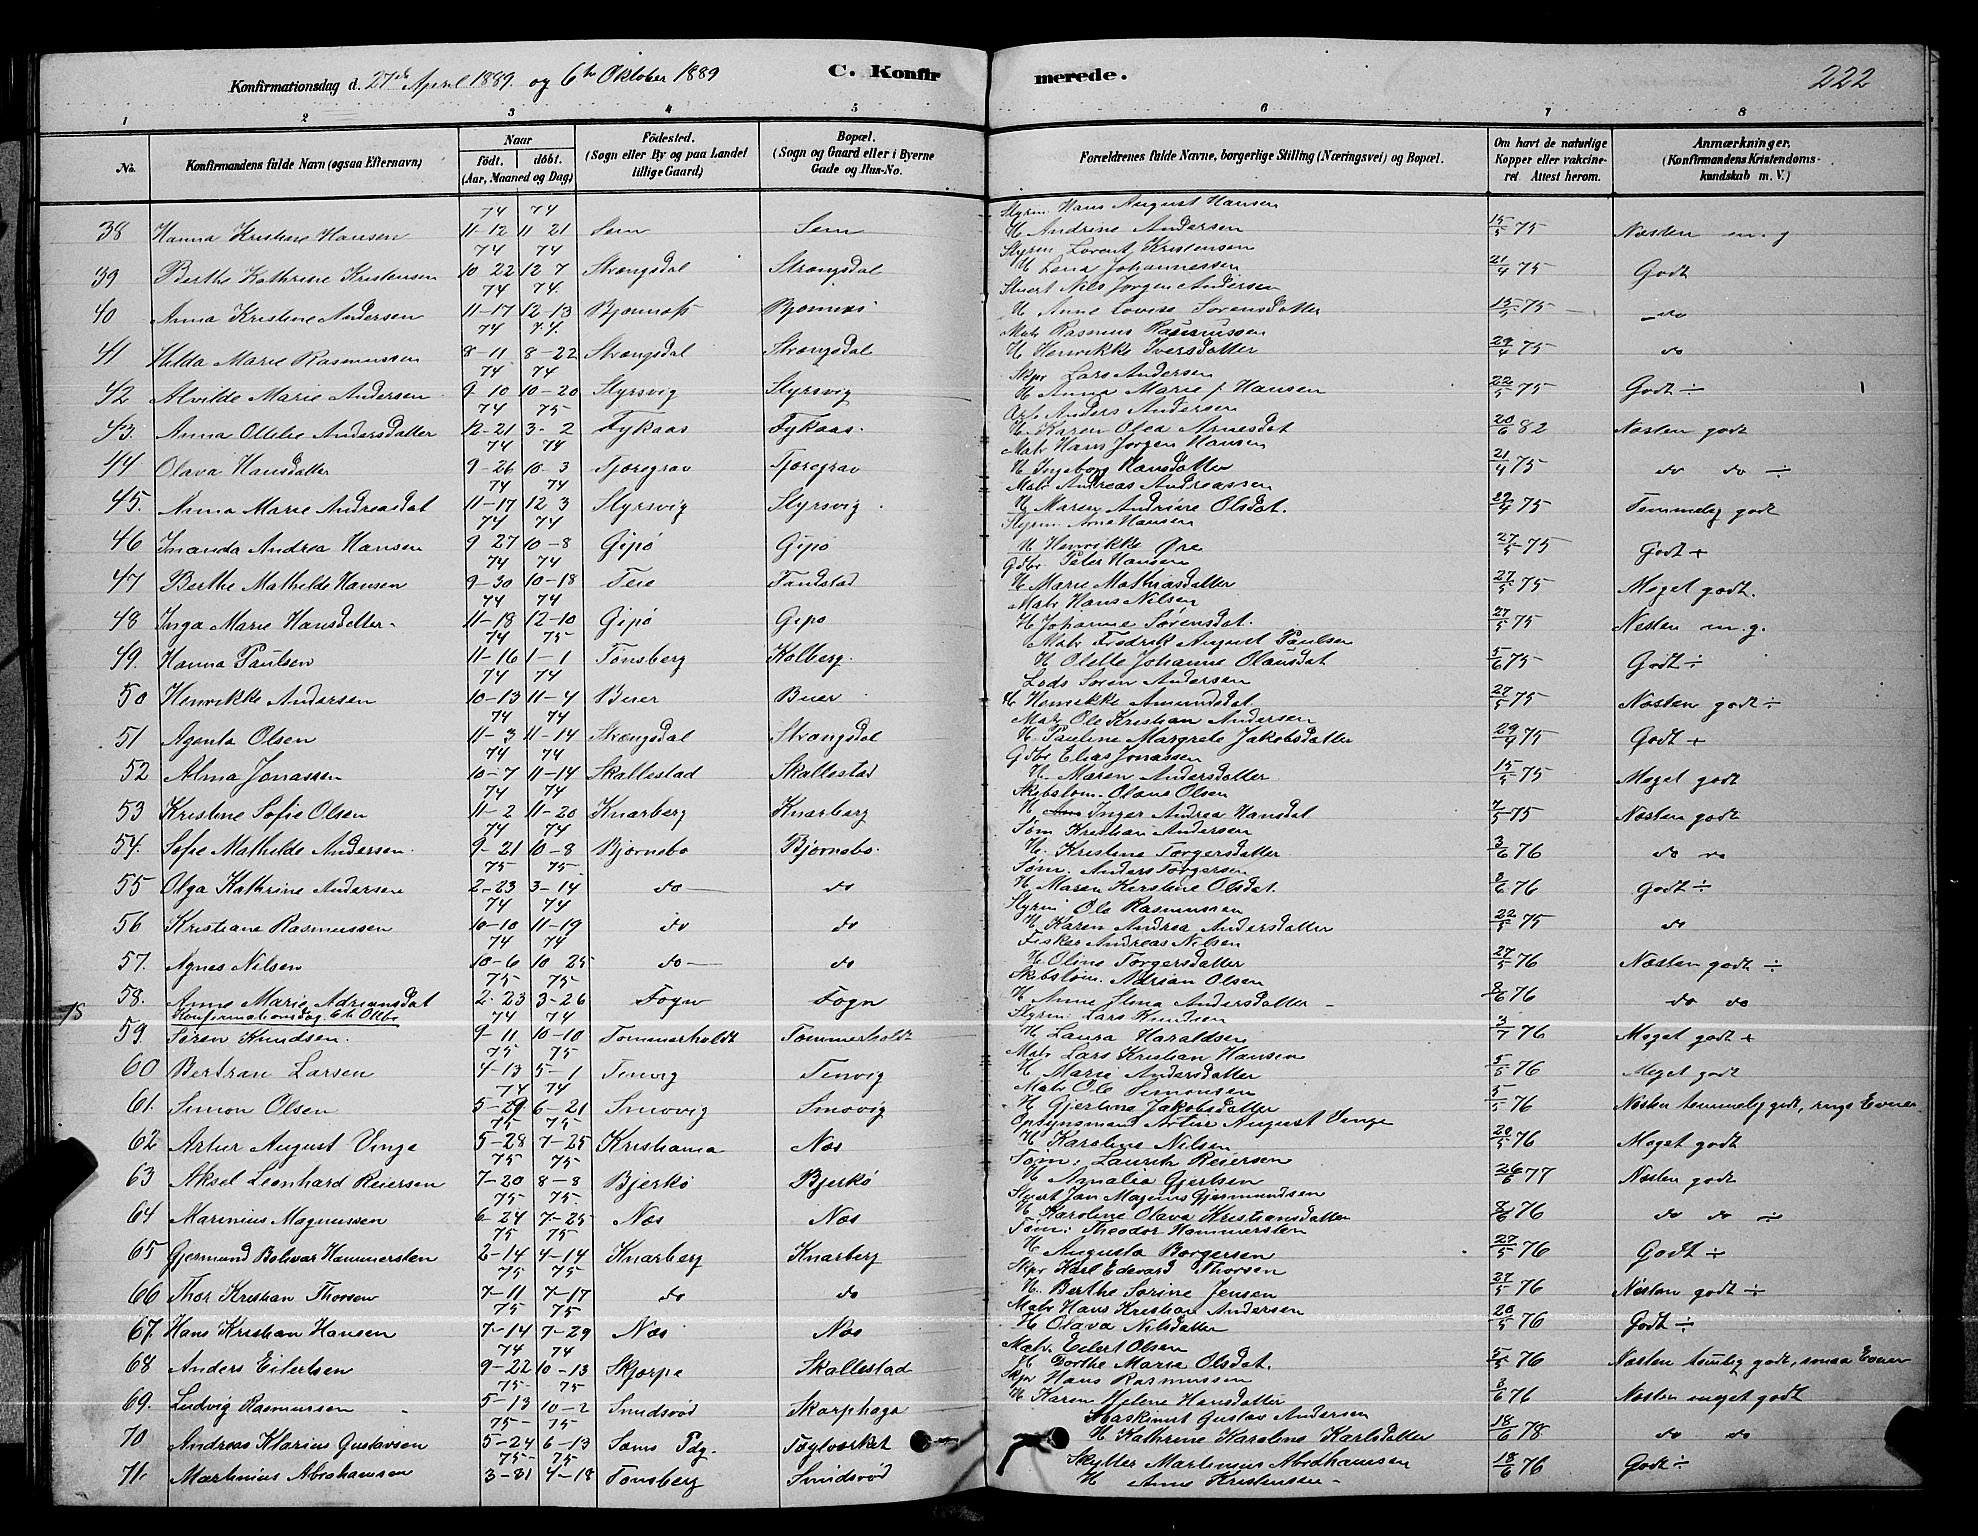 Konfirmationsdag d. 27de April 1889. og 6te Oktober 1889 C. Konfirmerede. 222
1 2 3 4 5 6 7 8
No. Konfirmandens fulde Navn (ogsaa Efternavn) Naar født. døbt. (Aar, Maaned og Dag) Fødested. (Sogn eller By og paa Landet tillige Gaard) Bopæl. (Sogn og Gaard eller i Byerne Gade og Hus-No. Forældrenes fulde Navne, borgerlige Stilling (Næringsvei) og Bopæl. Om havt de naturlige Kopper eller vakcineret. Attest herom. Anmærkninger. (Konfirmandens Kristendomskundskab m. V.)
74 74 Styrm. Hans August Hansen
38 Hanna Kristine Hansen 11-12 11 21 Sem Sem H Andrine Andersen 15/5 75 Næsten m. g
74 74 Styrm Lorent Kristensen
39 Berthe Kathrine Kristensen 10 22 12 7 Strængsdal Strængsdal H Lena Johannessen 21/4 75 Godt
74 74. Stuert Nils Jørgen Andersen
40 Anna Kristine Andersen 11-17 12-13 Bjørnnæs Bjørnnæs H Anne Lovise Sørensdatter 15/5 75 do
74 74. Matr Rasmus Rasmussen
41 Hilda Marie Rasmussen 8-11 8-22 Strængsdal Strængsdal H Henrikke Iversdatter 29/4 75 do
74 74 Skpr Lars Andersen
42 Alvilde Marie Andersen 9-10 10-20 Styrsvig Styrsvig H Anna Marie f Hansen 22/5 75 Godt ÷
74 75 Arb Anders Andersen
43. Anna Ottilie Andersdatter 12-21 3-2 Fykaas Fykaas. H. Karen Olea Arnesdat 20/6 82 Næsten godt
74 74 Matr Hans Jørgen Hansen
44 Olava Hansdatter 9-26 10-3 Tjøregrav Tjøregrav H Ingeborg Hansdatter 21/4 75 do do ÷
74 74 Matr Andreas Andreassen
45. Anna Marie Andreasdat 11-17 12 3 Styrsvig Styrsvig H Maren Andrine Olsdat. 29/4 75 Temmelig godt
74 74 Styrm. Arne Hansen
46 Inanda Andrea Hansen 9 27 10-8 Gipø Gipø H Henrikke Øre 27/5 75 Godt +
74 74 Gdbr Peter Hansen
47 Berthe Mathilde Hansen 9-30 10-18 Teie Tandstad H Marie Mathiasdatter 27/5 75 Meget godt.
74 74 Matr Hans Nilsen
48 Inga Marie Hansdatter 11-18 12-10 Gipø Gipø H Johanne Sørensdat. 27/5 75 Nesten m. g.
74 75 Matr Fredrik August Paulsen
49. Hanna Paulsen 11-16 1-1 Tønsberg Kolberg. H Olette Johanne Olausdat 5/6 75 Godt ÷
74 74 Lods Søren Andersen
50 Henrikke Andersen 10-13 11-4 Buer Buer H Henrikke Amundsdat 27/5 75 Næsten godt ÷
74 74 Matr Ole Kristian Andersen
51 Agenta Olsen 11-3 11-14 Strængsdal Strængsdal H. Pauline Margrete Jakobsdatter 29/4 75 Godt +
74 74 Gdbr Elias Jonassen
52 Alma Jonassen 10-7 11-14 Skallestad Skallestad H. Maren Andersdatter 15/5 75 Meget godt
74 74 Skibstøm. Olaus Olsen
53 Kristine Sofie Olsen 11-2 11-20 Knarberg Knarberg H Inger Andrea Hansdat 7/5 75 Næsten godt
74 74 Tøm Kristian Andersen
54. Sofie Mathilde Andersen. 9-21 10-8 Bjørnebo Bjørnebo. H. Kristine Torgersdatter 3/6 76 do do
75 75. Tøm. Anders Torgersen
55 Olga Kathrine Andersen 2-23 3-14 do do H Maren Kirstine Olsdat. 3/6 76 Godt ÷
74 74 Styrm Ole Rasmussen
56 Kristiane Rasmussen 10-10 11-19 do do H Karen Andrea Andersdatter 22/5 75 do
74 74 Fisker Andreas Nilsen
57. Agnes Nilsen 10-6 10 25 do do H Oline Torgersdatter 27/5 76 Næsten godt ÷
75 75. Skibstøm. Adrian Olsen
58. Anne Marie Adriansdat 2-23 3-26 Fogn Fogn H Anne Stina Andersdatter 8/6 76 do do
Konfirmationsdag 6te Oktbr 74 74 Styrm. Lars Knudsen
59. Søren Knudsen. 9-11 10-10 Tømmerholdt Tømmerholdt H Laura Haraldsen 3/7 76 Meget godt +
75 75 Matr Lars Kristian Hansen
60 Bertran Larsen 4-13 5-1 Tenvig Tenvig H Marie Andersdatter 5/5 76 Meget godt
74 74 Matr Ole Simonsen
61. Simon Olsen 5-29 6-21 Smovig Smovig H Gjertine Jakobsdatter 5/5 76 Næsten temmelig godt, ringe Evner
75 75. Opsynsmand Artur August Vinge
62 Artur August Vinge 5-28 7-25 Kristiania Næs H Karoline Nilsen 20/5 76 Meget godt
75 75. Tøm: Lauritz Reiersen
63 Aksel Leonhard Reiersen 7-20 8-8 Bjerkø Bjerkø H Amalia Gjertsen 26/6 77 Næsten godt
75 75 Styrt Jan Magnus Gjermundsen
64 Marinius Magnussen 6-24 7-25 Næs Næs H Karoline Olava Kristiansdatter 8/6 76 do do ÷
75 75. Tøm: Theodor Hammersten
65 Gjermund Bolivar Hammersten 2-14 4-14 Knarberg Knarberg H Augusta Borgersen 27/5 76 Godt ÷
75 75 Skpr Karl Edevard Thorsen
66 Thor Kristian Thorsen 7-11 7-17 do do H. Berthe Sorine Jensen 27/5 76 Næsten godt ÷
75 75 Matr Hans Kristian Andersen
67. Hans Kristian Hansen 7-14 7-29 Næs Næs H Olava Nilsdatter 20/5 76 Godt ÷
74 74 Matr. Eilert Olsen
68 Anders Eilertsen 9-22 10-13 Skjærpe Skallestad H Dorthe Maria Olsdat. 5/5 76 Næsten temlig godt, smaa Evner
75- 75 Skpr Hans Rasmussen
69. Ludvig Rasmussen 5-13 10-2 Smidsrød Skarphaga H. Karen Helene Hansdatter 3/6 76 Næsten meget godt
75- 75 Maskinist Gustav Andersen
70 Andreas Klarius Gustavsen 5-24 6-13 Sæms Pdg. Teglverket H Kathrine Karoline Karlsdatter 18/6 78 do do
75- 75 Skytter Martinius Abrahamsen
71. Martinius Abrahamsen 3-31 4-18 Tønsberg Smidsrød H Anne Kristensen 18/6 76 Godt ÷